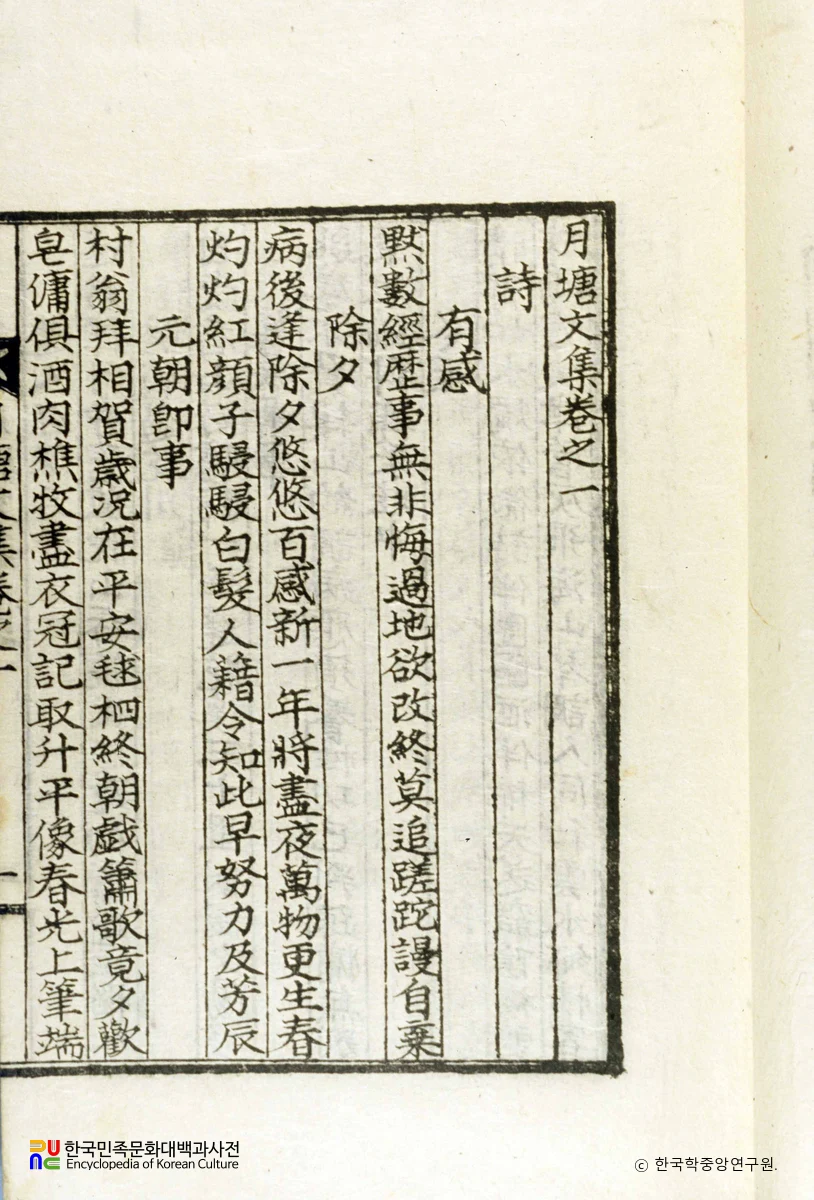 月塘文集卷之一
詩
有感
黙數經歷事無非悔過地欲改終莫追蹉跎謾自棄
除夕
病後逢除夕悠悠百感新一年將盡夜萬物更生春
灼灼紅顔子駸駸白髮人籍令知此早努力及芳辰
元朝卽事
村翁拜相賀歲况在平安毬柶終朝戱簫歌竟夕歡
皂傭俱酒肉樵牧盡衣冠記取升平像春光上筆端
月塘文集卷之一
一
한국민족문화대백과사전
Encyclopedia of Korean Culture
ⓒ 한국학중앙연구원.